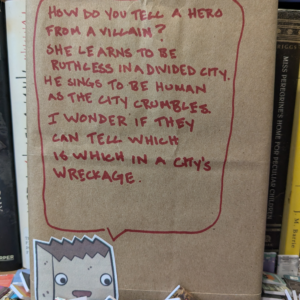 HOW DO YOU TELL A HERO
FROM A VILLAIN?
SHE LEARNS TO BE
RUTHLESS IN A DIVIDED CITY.
HE SINGS TO BE HUMAN
AS THE CITY CRUMBLES.
I WONDER IF THEY
CAN TELL WHICH
IS WHICH IN A CITY'S
WRECKAGE.
MISS PEREGRINE'S HOME FOR PECULIAR CHILDREN